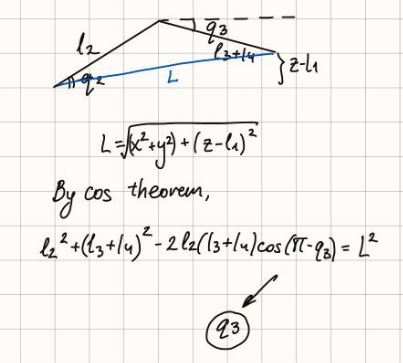 l₂
q₃
l₃+l₄
q₂
L
z-l₁
L=√(x²+y²)+(z-l₁)²
By cos theorem,
l₂²+(l₃+l₄)²-2l₂(l₃+l₄)cos(π-q₃)=L²
q₃